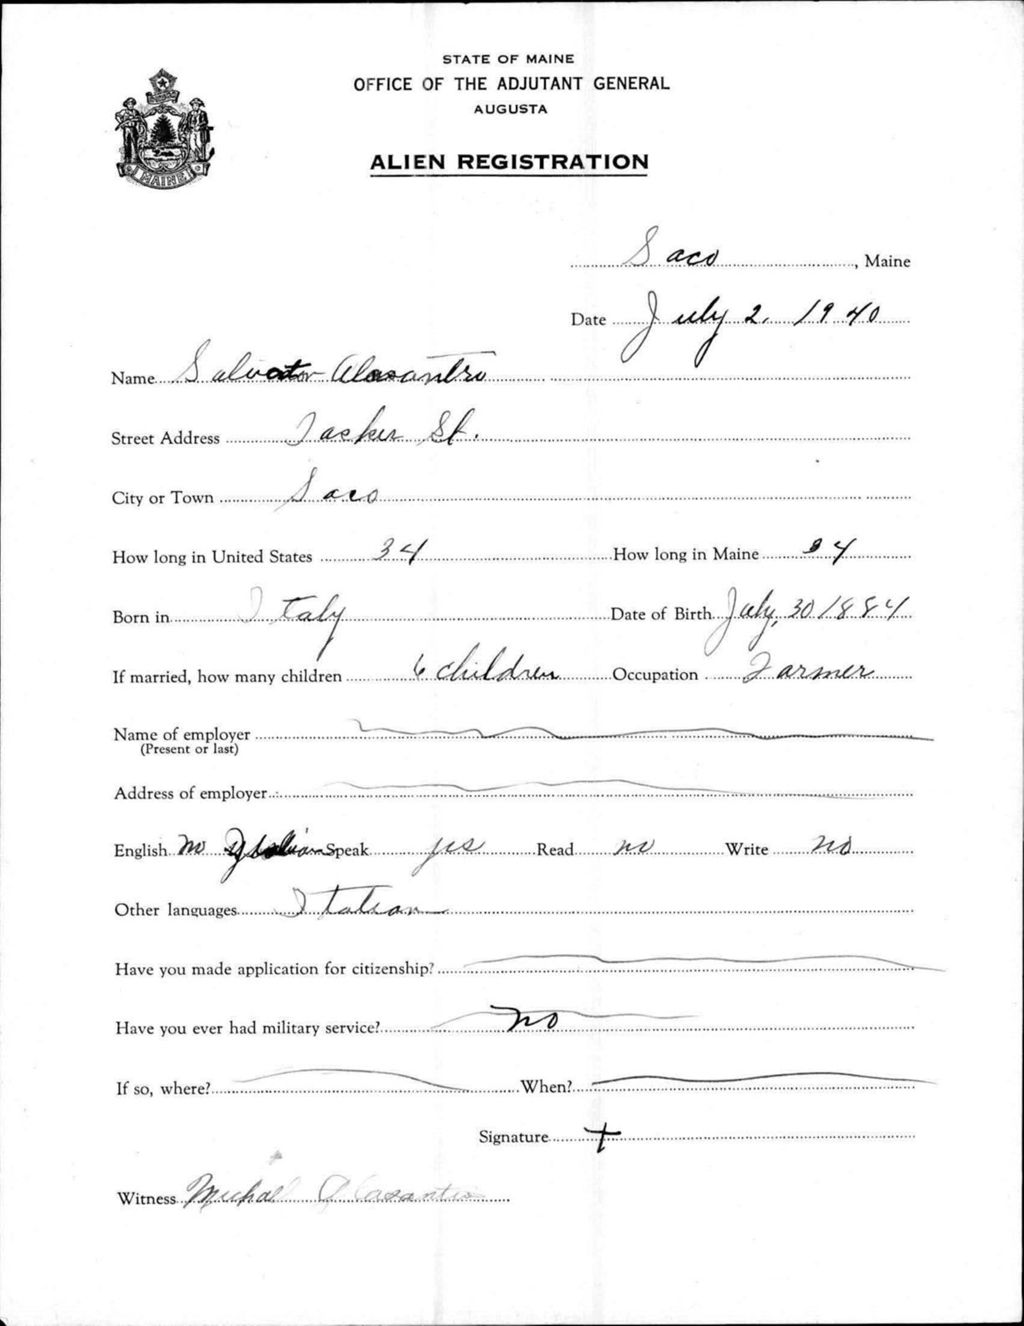 STATE OF MAINE
OFFICE OF THE ADJUTANT GENERAL
AUGUSTA
ALIEN REGISTRATION
MAINE
Saco, Maine
Date July 2, 1940
Name Salvator Alasantro
Street Address Tasker St.
City or Town Saco
How long in United States 34 How long in Maine 34
Born in Italy Date of Birth July, 30 1884
If married, how many children 6 children Occupation Farmer
Name of employer
(Present or last)
Address of employer
English no Speak yes Read no Write no
Other languages Italian
Have you made application for citizenship?
Have you ever had military service? no
If so, where? When?
Signature +
Witness Michael Alasantro